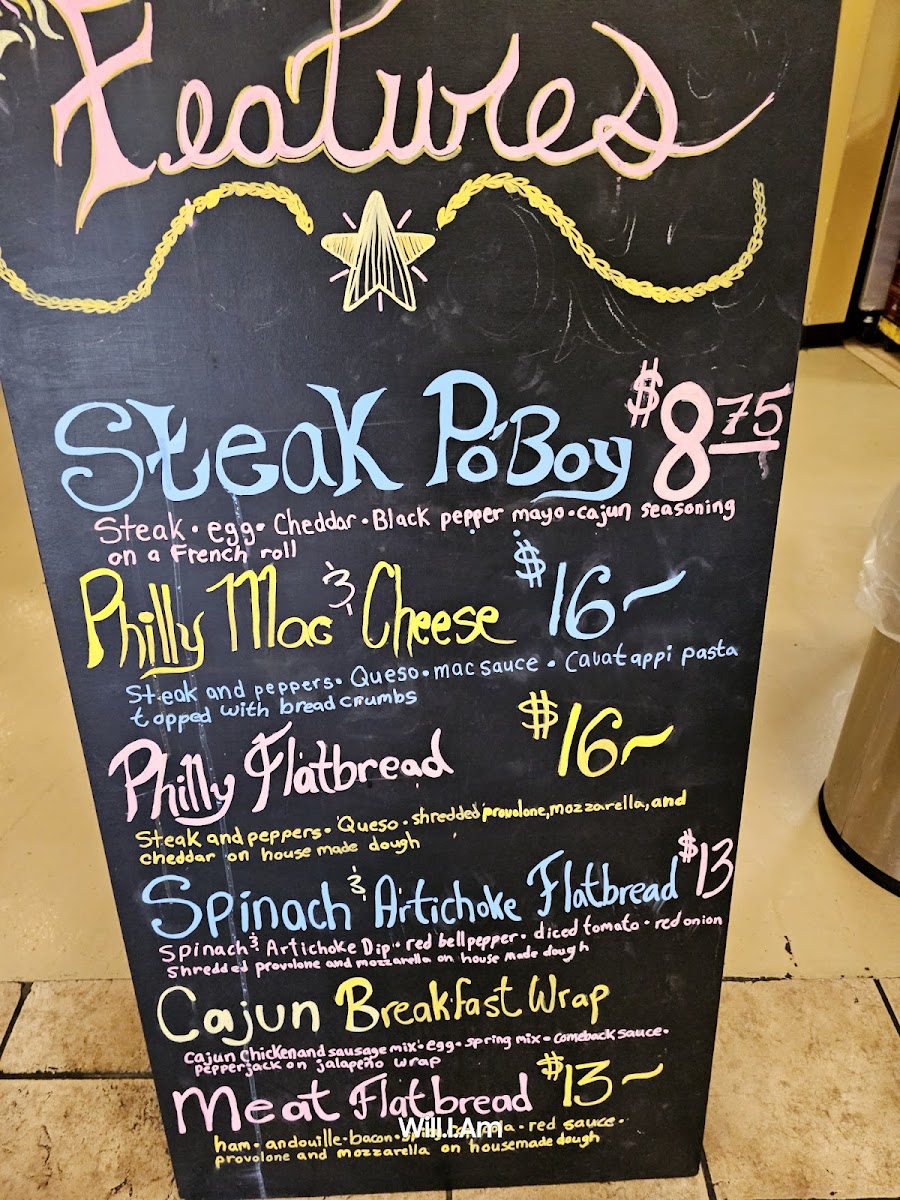 Features
Steak Po'Boy $8 75
Steak • egg • Cheddar • Black pepper mayo • cajun seasoning
on a French roll
Philly Mac & Cheese $16~
Steak and peppers • Queso • mac sauce • Cavatappi pasta
topped with bread crumbs
Philly Flatbread $16~
Steak and peppers • Queso • shredded provolone, mozzarella, and
cheddar on house made dough
Spinach & Artichoke Flatbread $13
Spinach & Artichoke Dip • red bell pepper • diced tomato • red onion
Shredded provolone and mozzarella on house made dough
Cajun Breakfast Wrap
cajun chicken and sausage mix • egg • spring mix • comeback sauce •
pepperjack on jalapeño wrap
Meat Flatbread $13~
ham • andouille - bacon • red sauce •
provolone and mozzarella on housemade dough
Will.I.Am